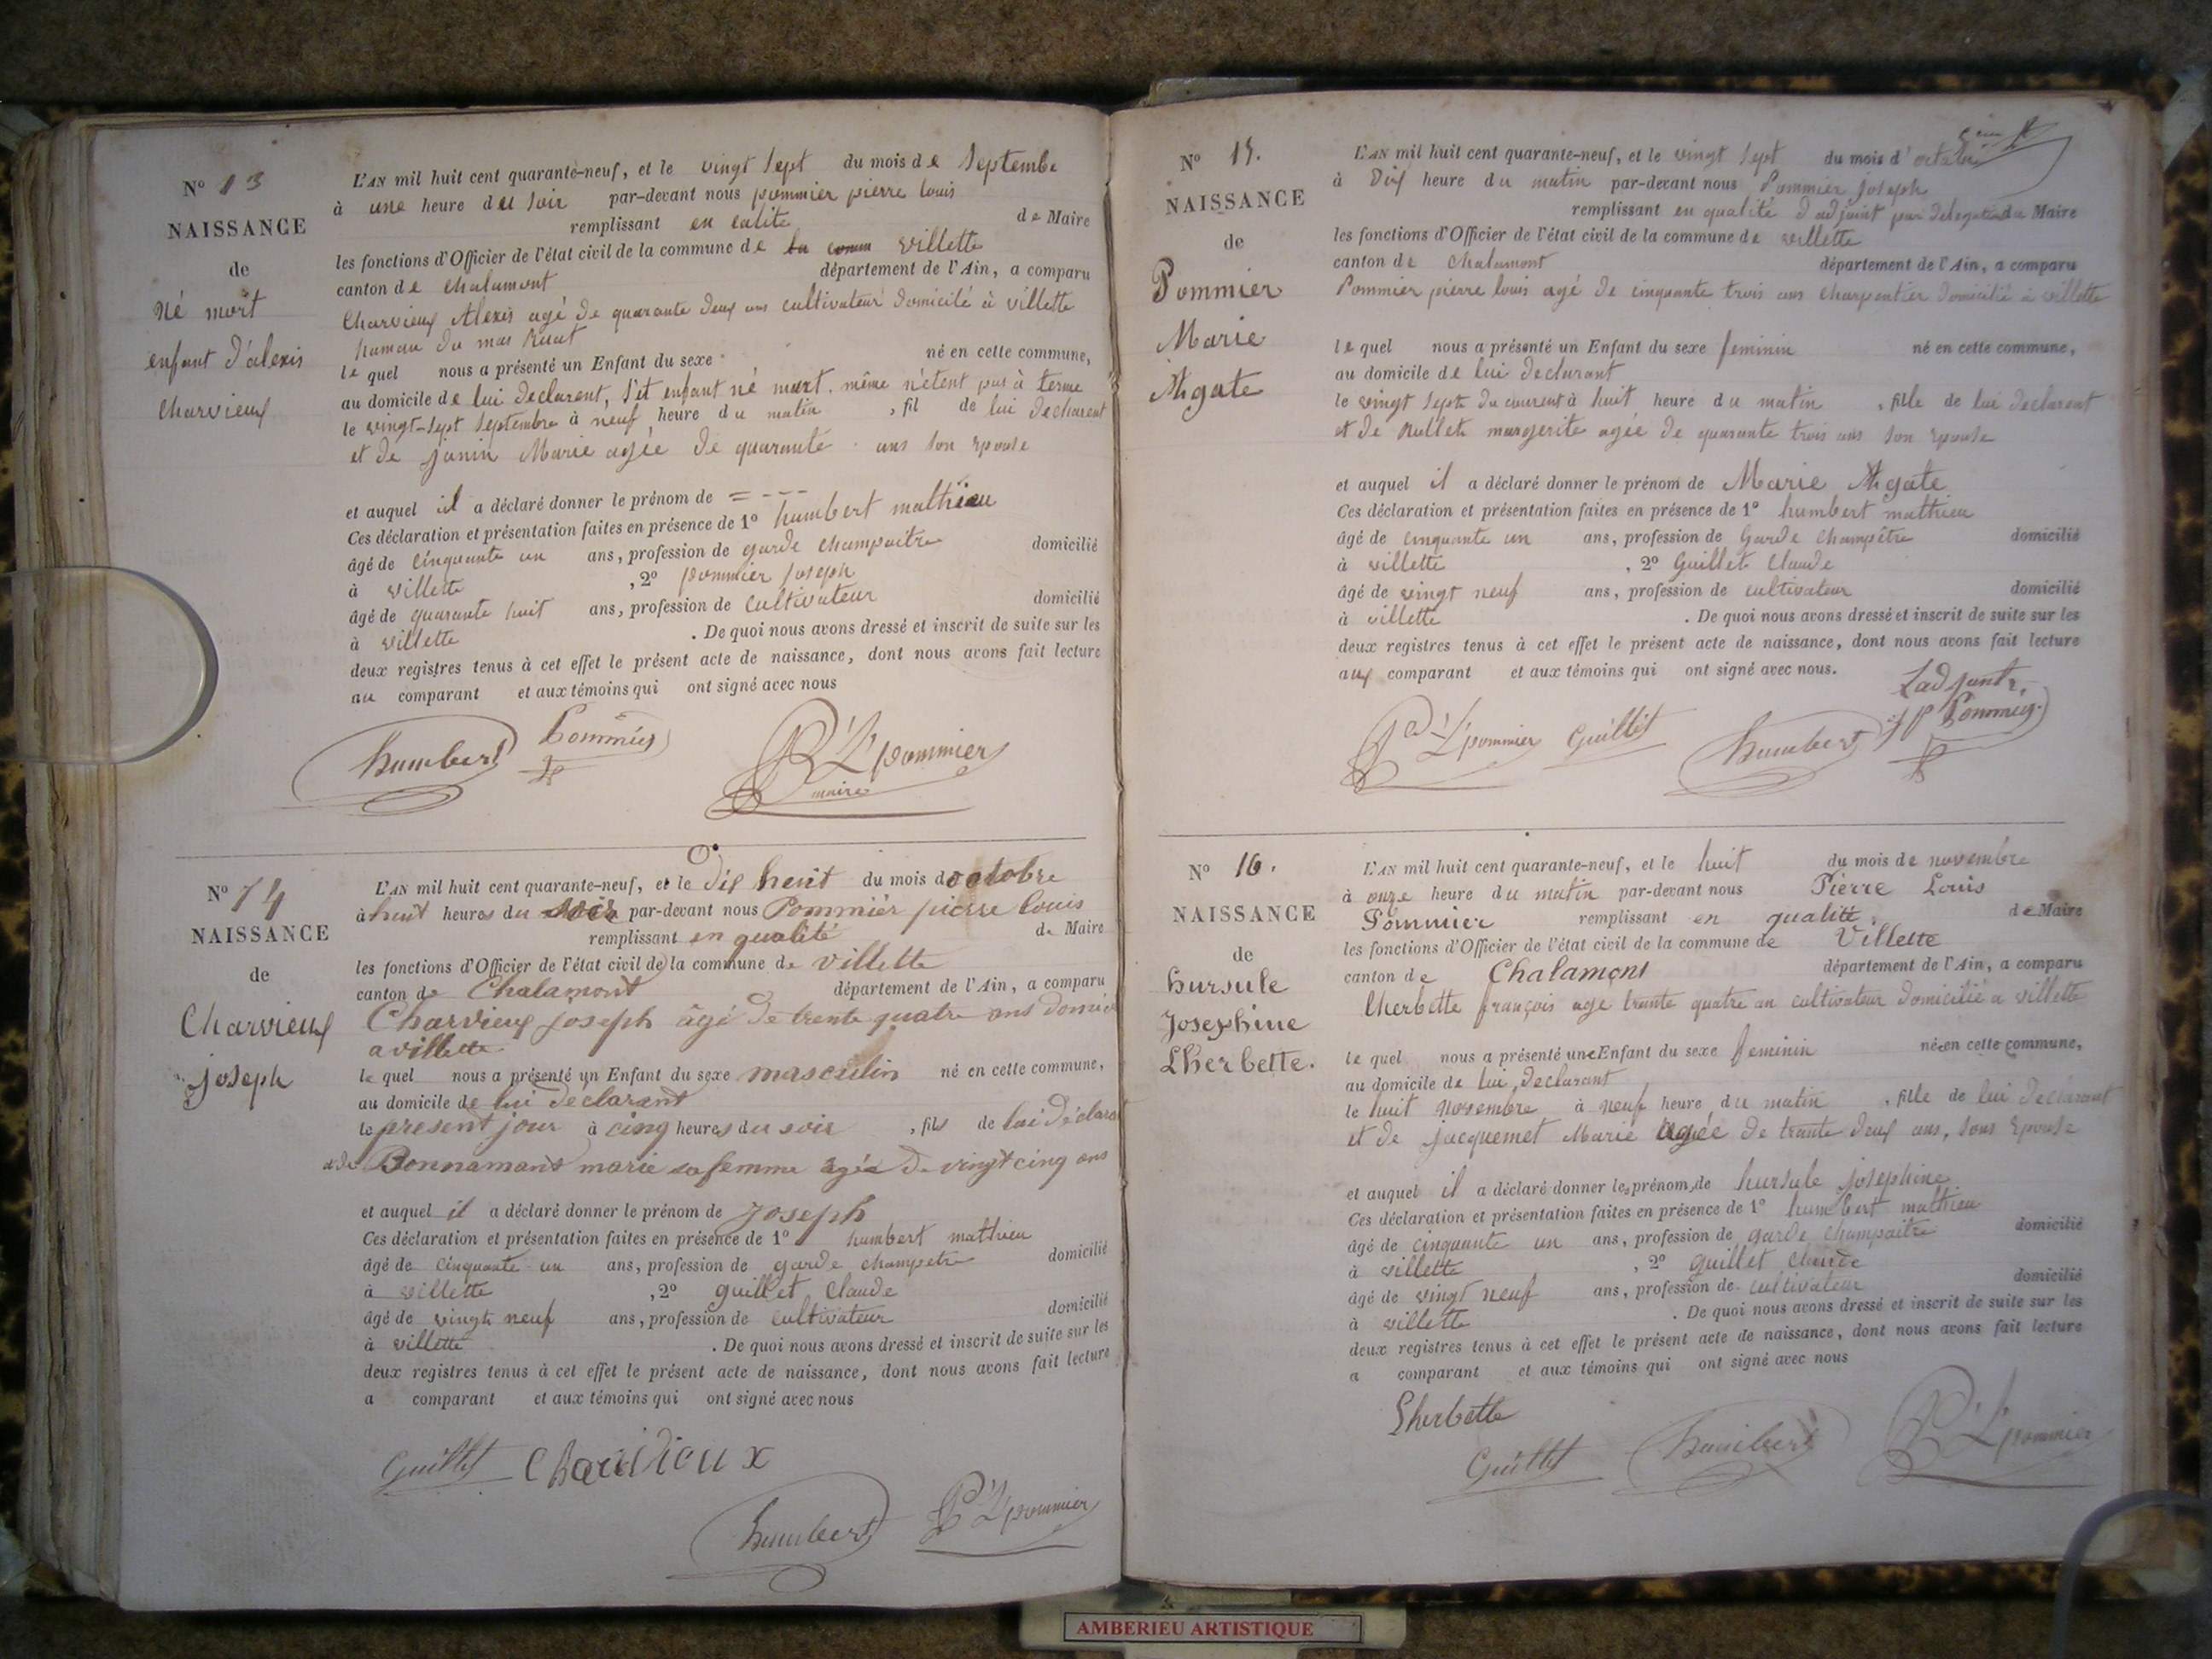 N° 13
NAISSANCE
de
Né mort
enfant d'alexis
Charvieux
L'AN mil huit cent quarante-neuf, et le vingt sept du mois de Septembe
à une heure du soir par-devant nous pommier pierre louis
remplissant en calite de Maire
les fonctions d'Officier de l'état civil de la commune de villette
canton de Chalamont département de l'Ain, a comparu
Charvieux Alexis agé de quarante deux ans cultivateur domicilé à villette
hamau du mas Ruat
le quel nous a présenté un Enfant du sexe né en cette commune,
au domicile de lui declarent, s'it enfant né mort. même n'etent pas à terme
le vingt-sept Septembre à neuf heure du matin , fil de lui declarent
et de janin Marie agée de quarante ans son Epouse
et auquel il a déclaré donner le prénom de = - - -
Ces déclaration et présentation faites en présence de 1° humbert mathieu
âgé de cinquante un ans, profession de garde champaitre domicilié
à villette , 2° pommier joseph
âgé de quarante huit ans, profession de cultivateur domicilié
à villette . De quoi nous avons dressé et inscrit de suite sur les
deux registres tenus à cet effet le présent acte de naissance, dont nous avons fait lecture
au comparant et aux témoins qui ont signé avec nous
humbert Pommier P L pommier
maire
N° 14
NAISSANCE
de
Charvieux
joseph
L'AN mil huit cent quarante-neuf, et le dix huit du mois d'octobre
à huit heures du soir par-devant nous Pommièr pierre louis
remplissant en qualité de Maire
les fonctions d'Officier de l'état civil de la commune de villette
canton de Chalamont département de l'Ain, a comparu
Charvieux joseph âgé de trente quatre ans domici
a villette
le quel nous a présenté un Enfant du sexe masculin né en cette commune,
au domicile de lui declarant
le present jour à cinq heures du soir , fils de lui déclara
et de Bonnamant marie sa femme agée de vingt cinq ans
et auquel il a déclaré donner le prénom de Joseph
Ces déclaration et présentation faites en présence de 1° humbert mathieu
âgé de cinquante un ans, profession de garde champetre domicilié
à villette , 2° guillet claude
âgé de vingt neuf ans, profession de cultivateur domicilié
à villette . De quoi nous avons dressé et inscrit de suite sur les
deux registres tenus à cet effet le présent acte de naissance, dont nous avons fait lecture
a comparant et aux témoins qui ont signé avec nous
Guillet Charvieux
humbert P L pommier
N° 15.
NAISSANCE
de
Pommier
Marie
Agate
L'AN mil huit cent quarante-neuf, et le vingt sept du mois d'octobre
à dix heure du matin par-devant nous Pommier joseph
remplissant en qualité d adjoint par delegation du Maire
les fonctions d'Officier de l'état civil de la commune de villette
canton de Chalamont département de l'Ain, a comparu
Pommier pierre louis agé de cinquante trois ans charpentier domicilié à villette
le quel nous a présenté un Enfant du sexe feminin né en cette commune,
au domicile de lui declarant
le vingt sept du courent à huit heure du matin , fille de lui declarent
et de Rullet margerite agée de quarante trois ans son Epouse
et auquel il a déclaré donner le prénom de Marie Agate
Ces déclaration et présentation faites en présence de 1° humbert mathieu
âgé de cinquante un ans, profession de Garde champêtre domicilié
à villette , 2° Guillet Claude
âgé de vingt neuf ans, profession de cultivateur domicilié
à villette . De quoi nous avons dressé et inscrit de suite sur les
deux registres tenus à cet effet le présent acte de naissance, dont nous avons fait lecture
aux comparant et aux témoins qui ont signé avec nous.
Ladjoint
P L pommier Guillet humbert Pommier
N° 16.
NAISSANCE
de
hursule
Josephine
Lherbette.
L'AN mil huit cent quarante-neuf, et le huit du mois de novembre
à onze heure du matin par-devant nous Pierre Louis
Pommier remplissant en qualité de Maire
les fonctions d'Officier de l'état civil de la commune de Villette
canton de Chalamont département de l'Ain, a comparu
Lherbette françois age trante quatre an cultivateur domicilié a villette
le quel nous a présenté une Enfant du sexe feminin née en cette commune,
au domicile de lui declarant
le huit novembre à neuf heure du matin , fille de lui declarant
et de jacquemet Marie agée de trante deux ans, sons Epouse
et auquel il a déclaré donner les prénom de hursule josephine
Ces déclaration et présentation faites en présence de 1° humbert mathieu
âgé de cinquante un ans, profession de garde champaitre domicilié
à villette , 2° guillet claude
âgé de vingt neuf ans, profession de cultivateur domicilié
à villette . De quoi nous avons dressé et inscrit de suite sur les
deux registres tenus à cet effet le présent acte de naissance, dont nous avons fait lecture
a comparant et aux témoins qui ont signé avec nous
Lherbette
Guillet humbert P L pommier
AMBERIEU ARTISTIQUE